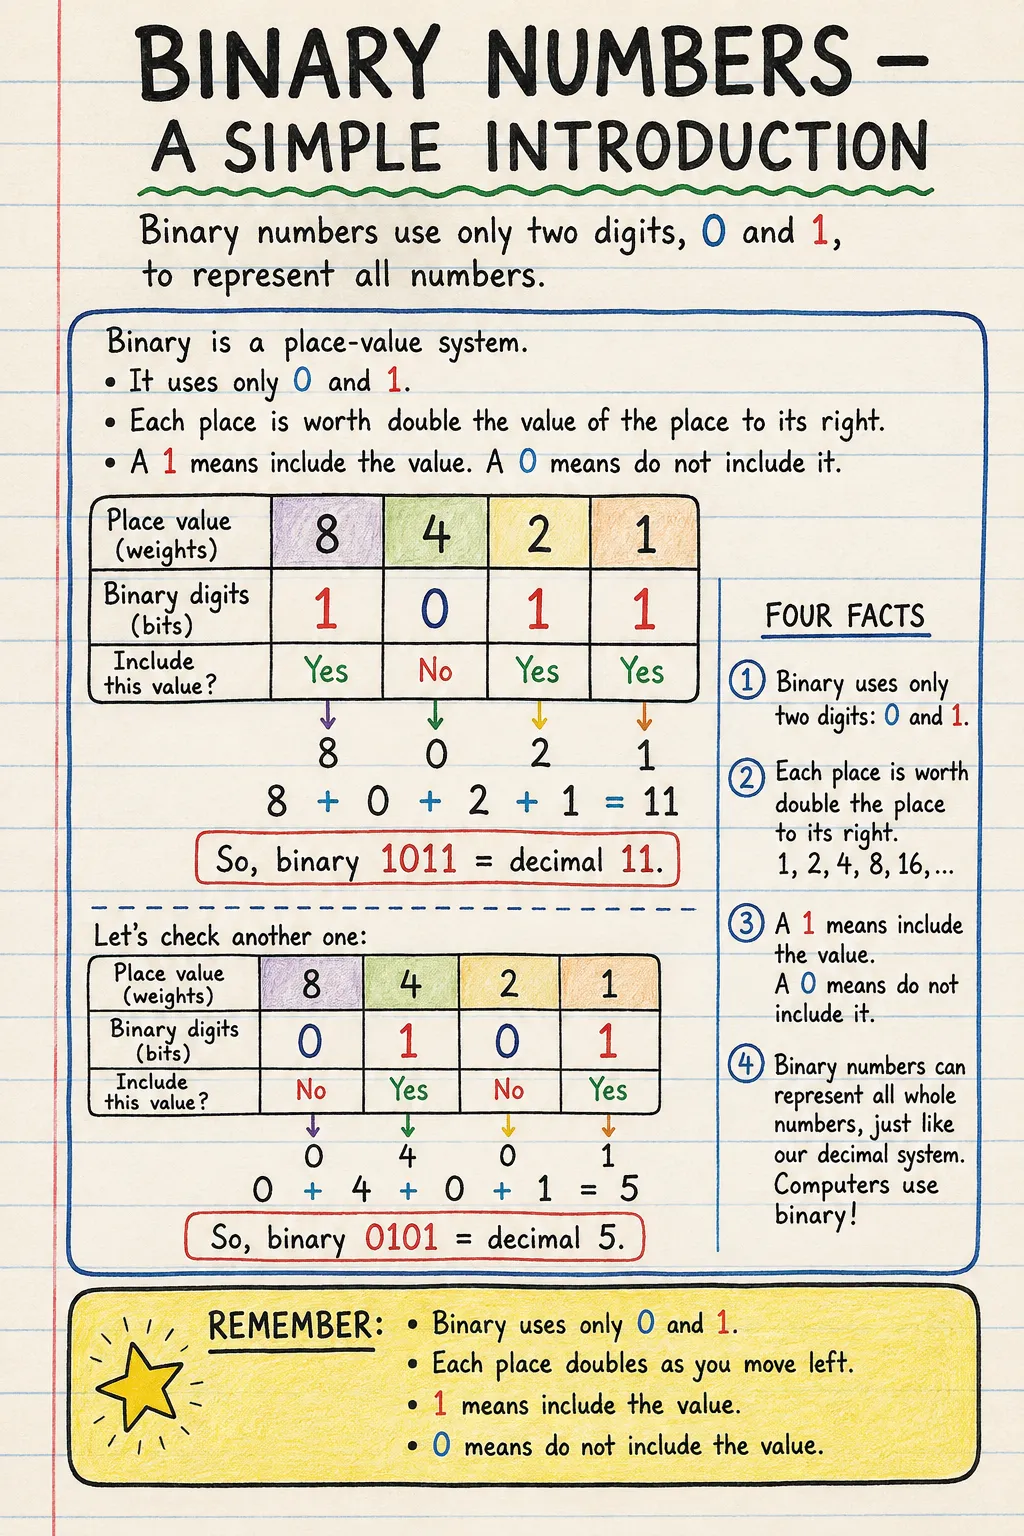 BINARY NUMBERS –
A SIMPLE INTRODUCTION
Binary numbers use only two digits, 0 and 1,
to represent all numbers.
Binary is a place-value system.
• It uses only 0 and 1.
• Each place is worth double the value of the place to its right.
• A 1 means include the value. A 0 means do not include it.
Place value
(weights)
8 4 2 1
Binary digits
(bits)
1 0 1 1
Include
this value?
Yes No Yes Yes
8 0 2 1
8 + 0 + 2 + 1 = 11
So, binary 1011 = decimal 11.
Let's check another one:
Place value
(weights)
8 4 2 1
Binary digits
(bits)
0 1 0 1
Include
this value?
No Yes No Yes
0 4 0 1
0 + 4 + 0 + 1 = 5
So, binary 0101 = decimal 5.
FOUR FACTS
1 Binary uses only
two digits: 0 and 1.
2 Each place is worth
double the place
to its right.
1, 2, 4, 8, 16,...
3 A 1 means include
the value.
A 0 means do not
include it.
4 Binary numbers can
represent all whole
numbers, just like
our decimal system.
Computers use
binary!
REMEMBER:
• Binary uses only 0 and 1.
• Each place doubles as you move left.
• 1 means include the value.
• 0 means do not include the value.